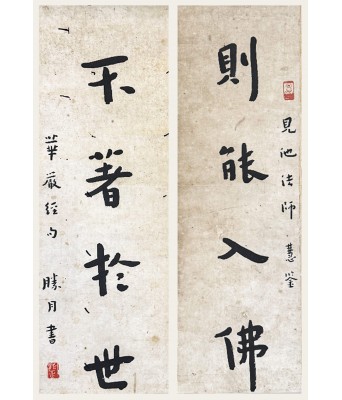 見池法師 慧鉴
則能入佛
不著於世
華嚴經句 勝月書